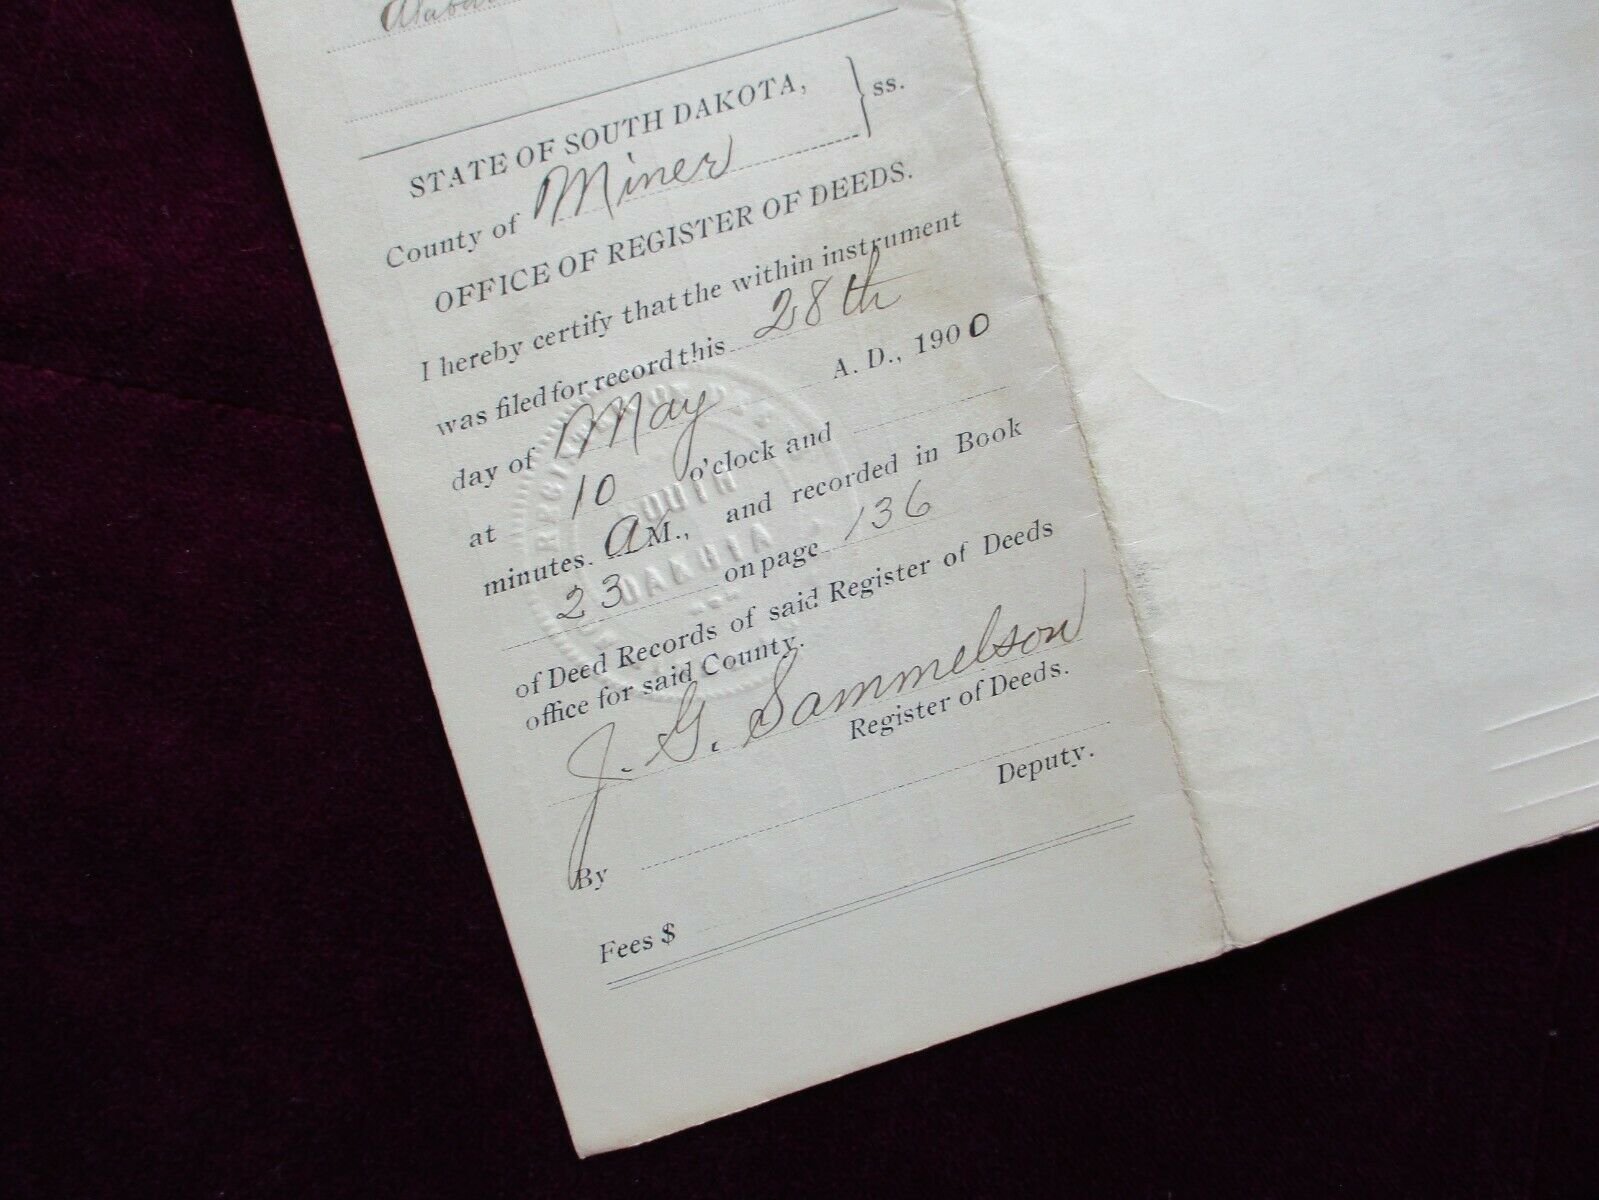 STATE OF SOUTH DAKOTA, } ss.
County of Miner
OFFICE OF REGISTER OF DEEDS.
I hereby certify that the within instrument
was filed for record this 28th
day of May A. D., 1900
at 10 o'clock and
minutes. AM., and recorded in Book
23 on page 136
of Deed Records of said Register of Deeds
office for said County.
J. G. Sammelson
Register of Deeds.
By
Deputy.
Fees $
SOUTH
DAKOTA